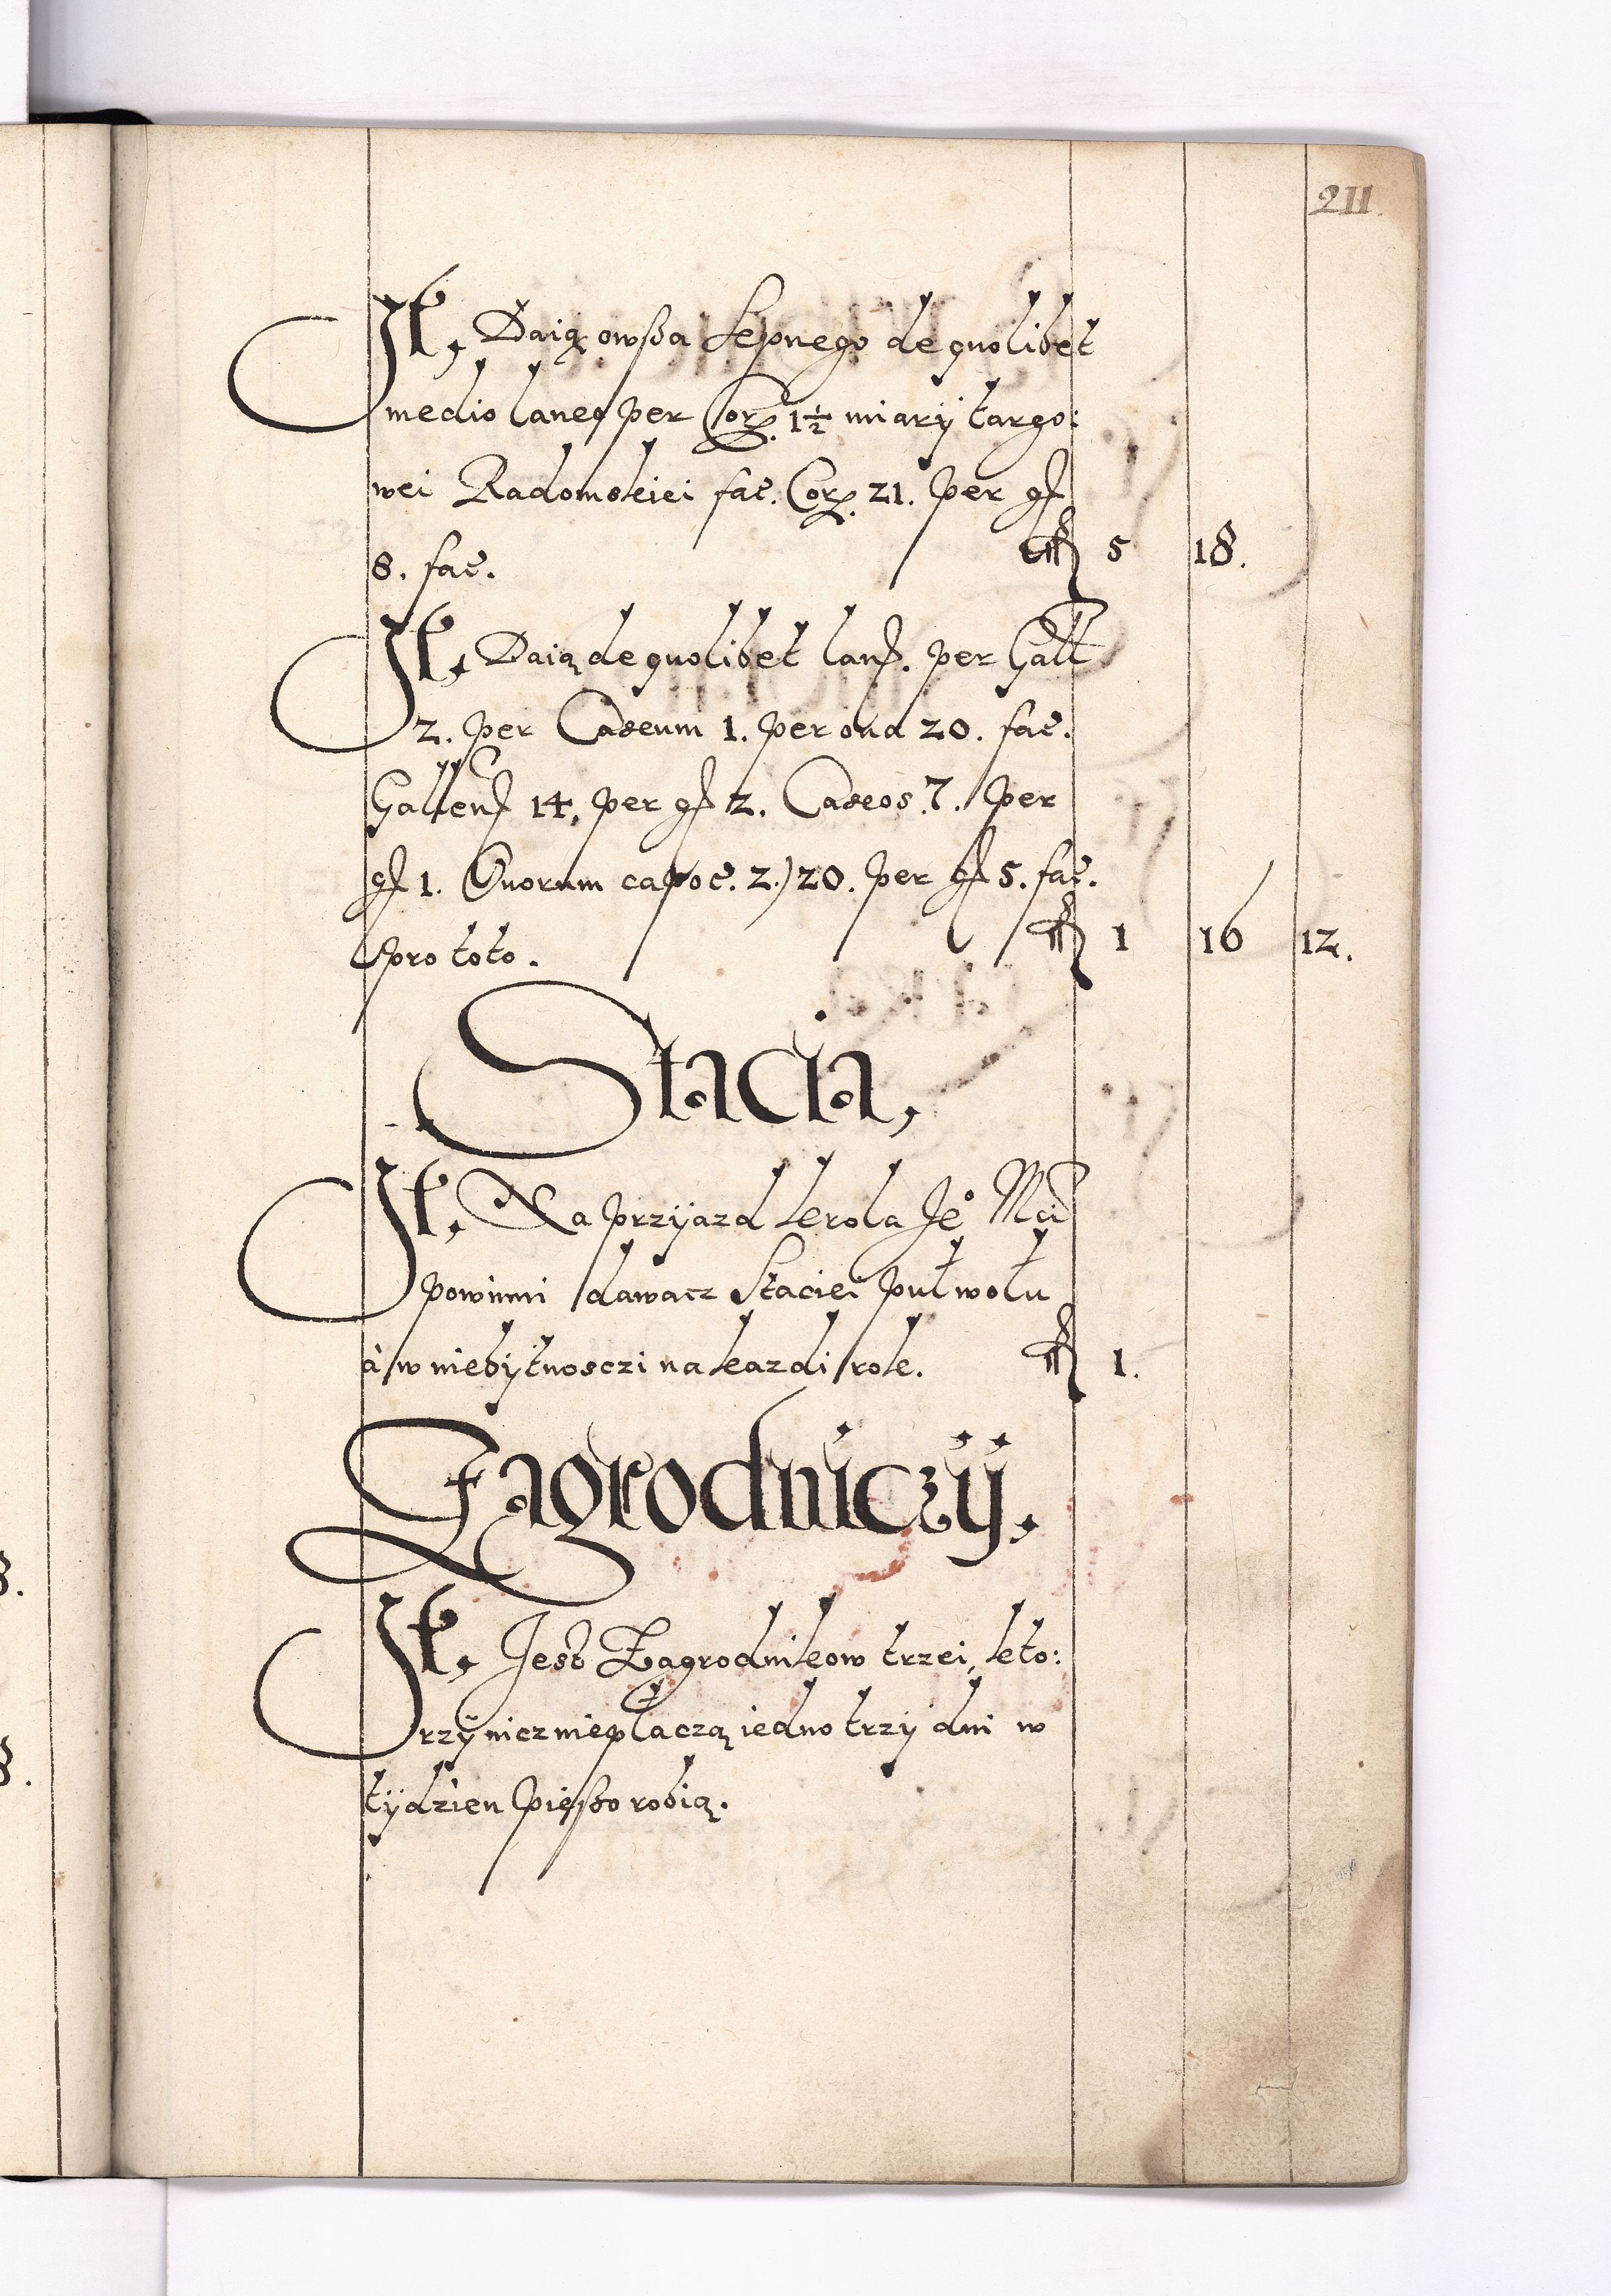 211.
It, Daią owssa sepnego de quolibet
medio laneo per Cor. 1½ miary targo:
wei Radomskiei fac. Cor. 21. per gr
8. fac. 5 18.
It, Daią de quolibet lan. per Gall
2. per Caseum 1. per oua 20. fac.
Gallen 14, per gr 2. Caseos 7. per
gr 1. Ouorum capoc. 2) 20. per gr 5. fac.
pro toto. 1 16 12.
Stacia,
It, Na przyiazd krola Je° Mci
powinni dawacz Staciei puł wołu
à w niebÿtnosczi na kazdi rok. 1.
Zagrodniczÿ.
It, Jest Zagrodnikow trzei, kto:
rzÿ nicz niepłaczą iedno trzÿ dni w
tÿdzien piesso robią.